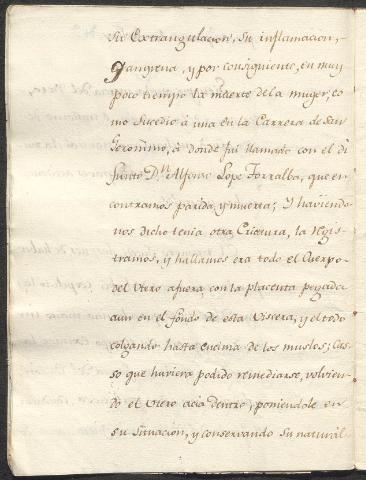 su Extrangulacion, su inflamacion,
gangrena, y por consiguiente, en muy
poco tiempo la muerte de la muger, co
mo sucedio à una en la Carrera de san
Geronimo, à donde fui llamado con el di
funto Dn. Alfonso Lope Torralba, que en
contramos parida, y muerta; Y haviendo
nos dicho tenia otra Criatura, la regis
tramos, y hallamos era todo el Cuerpo
del Utero afuera, con la placenta pegada
aun en el fondo de esta Viscera, y el todo
colgando hasta encima de los muslos; Ca
so que huviera podido remediarse, volvien
do el Utero acia dentro, poniendole en
su situacion, y conservando su natural